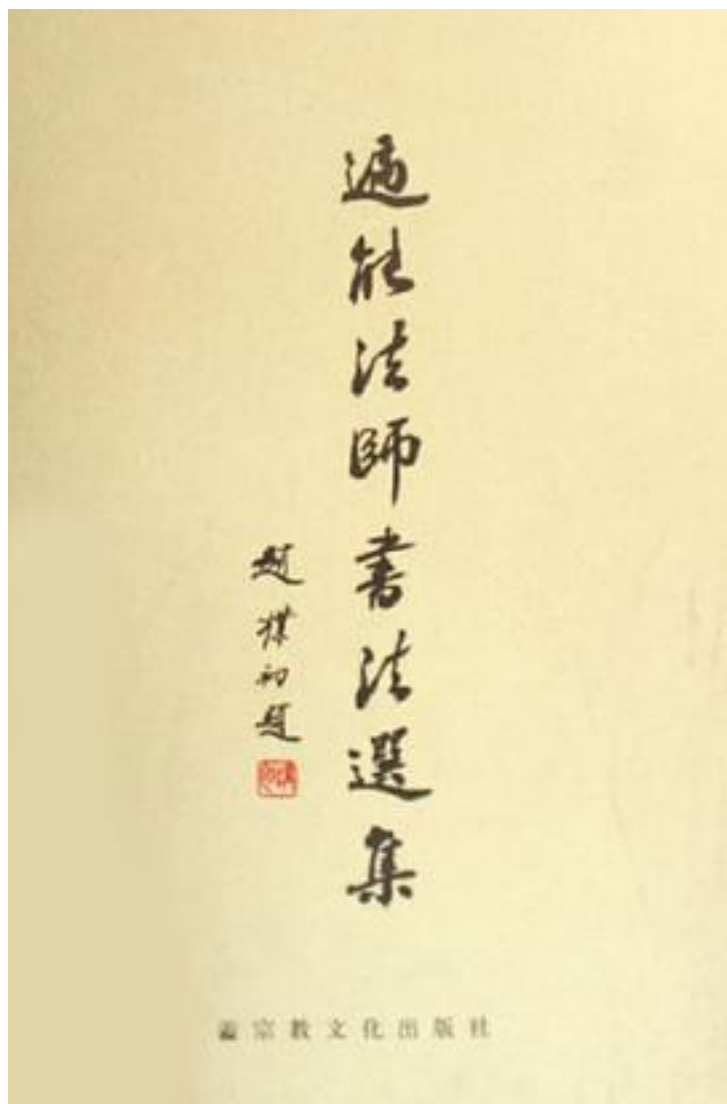 遍能法師書法選集
趙樸初題
宗教文化出版社